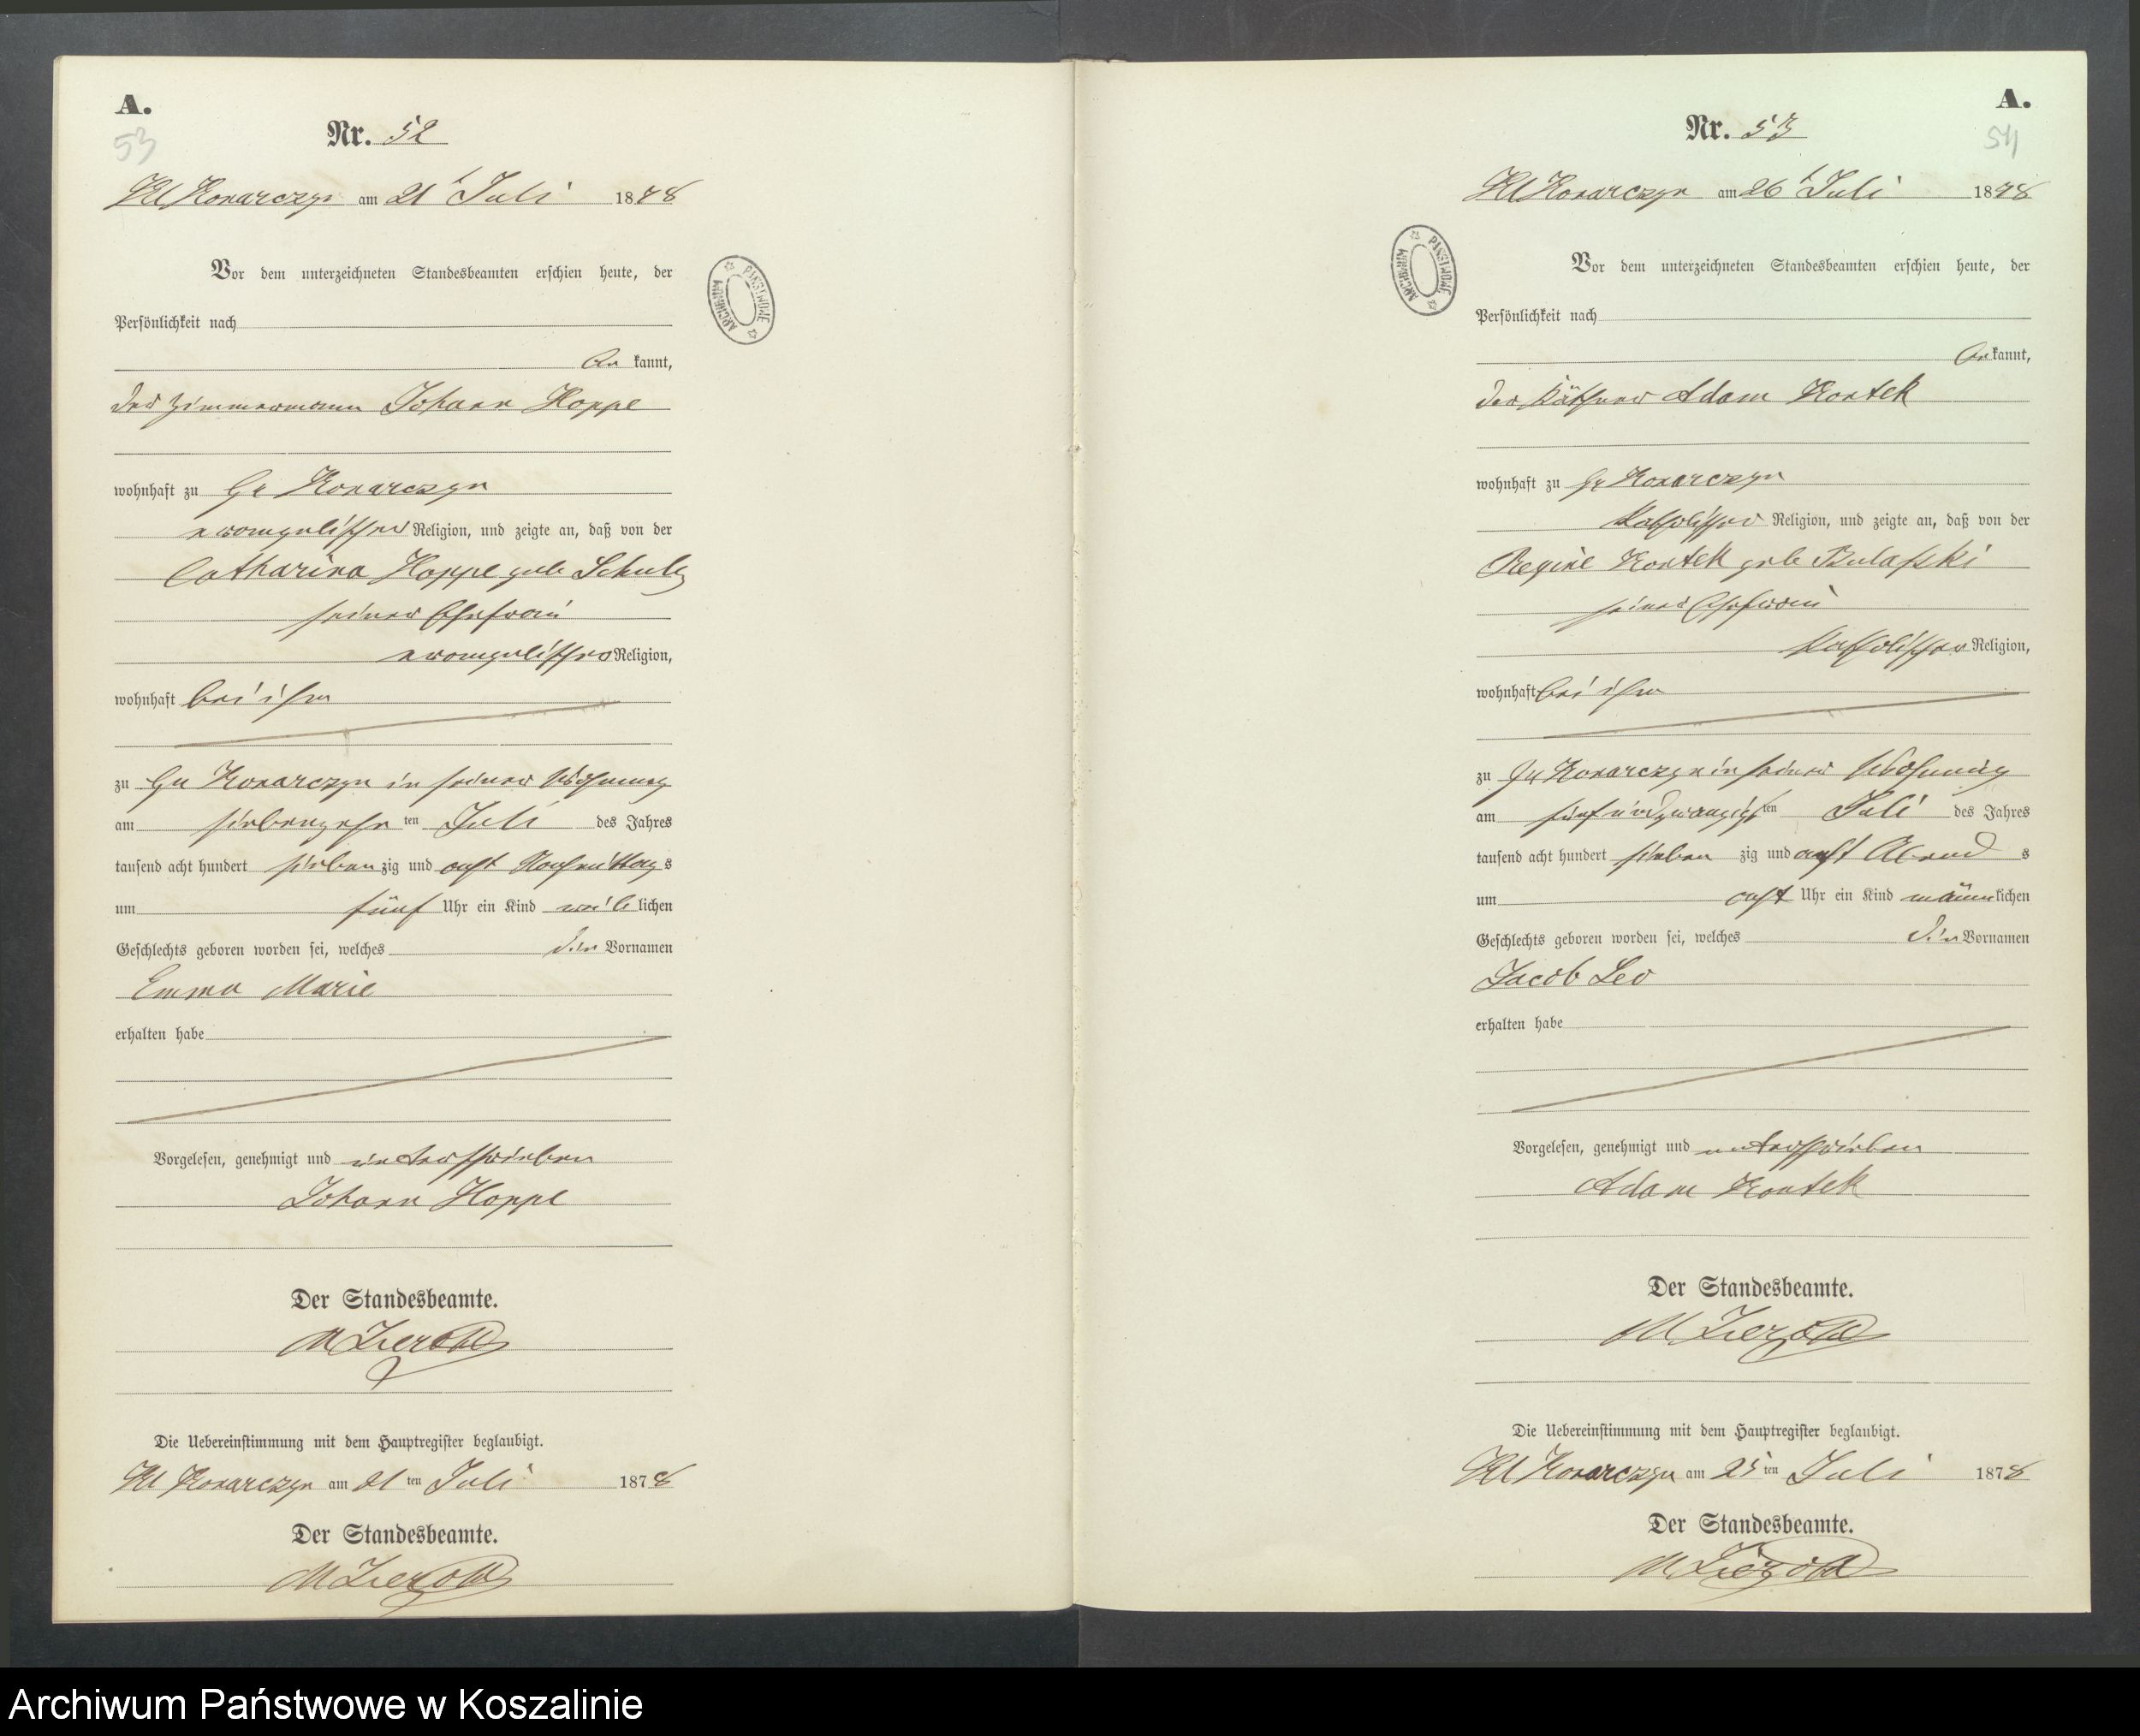 A.
53
Nr. 52
Kl Konarczyn am 21t Juli 1878
Vor dem unterzeichneten Standesbeamten erschien heute, der
Persönlichkeit nach
be kannt,
der Zimmermann Johann Hoppe
wohnhaft zu Gr Konarczyn
evangelischer Religion, und zeigte an, daß von der
Catharina Hoppe geb Schulz
seiner Ehefrau
evangelischer Religion,
wohnhaft bei ihm
zu Gr Konarczyn in seiner Wohnung
am siebenzehn ten Juli des Jahres
tausend acht hundert sieben zig und acht Nachmittag s
um fünf Uhr ein Kind weib lichen
Geschlechts geboren worden sei, welches die Vornamen
Emma Marie
erhalten habe
Vorgelesen, genehmigt und unterschrieben
Johann Hoppe
Der Standesbeamte.
Die Uebereinstimmung mit dem Hauptregister beglaubigt.
Kl Konarczyn am 21 ten Juli 1878
Der Standesbeamte.
ARCHIWUM PAŃSTWOWE
A.
54
Nr. 53
Kl Konarczyn am 26t Juli 1878
Vor dem unterzeichneten Standesbeamten erschien heute, der
Persönlichkeit nach
be kannt,
der Käthner Adam Kontek
wohnhaft zu Gr Konarczyn
katholischer Religion, und zeigte an, daß von der
Regine Kontek geb
seiner Ehefrau
katholischer Religion,
wohnhaft bei ihm
zu Gr Konarczyn in seiner Wohnung
am fünfundzwanzigsten Juli des Jahres
tausend acht hundert sieben zig und acht Abend s
um acht Uhr ein Kind männlichen
Geschlechts geboren worden sei, welches die Vornamen
Jacob Leo
erhalten habe
Vorgelesen, genehmigt und unterschrieben
Adam Kontek
Der Standesbeamte.
Die Uebereinstimmung mit dem Hauptregister beglaubigt.
Kl Konarczyn am 25 ten Juli 1878
Der Standesbeamte.
ARCHIWUM PAŃSTWOWE
Archiwum Państwowe w Koszalinie